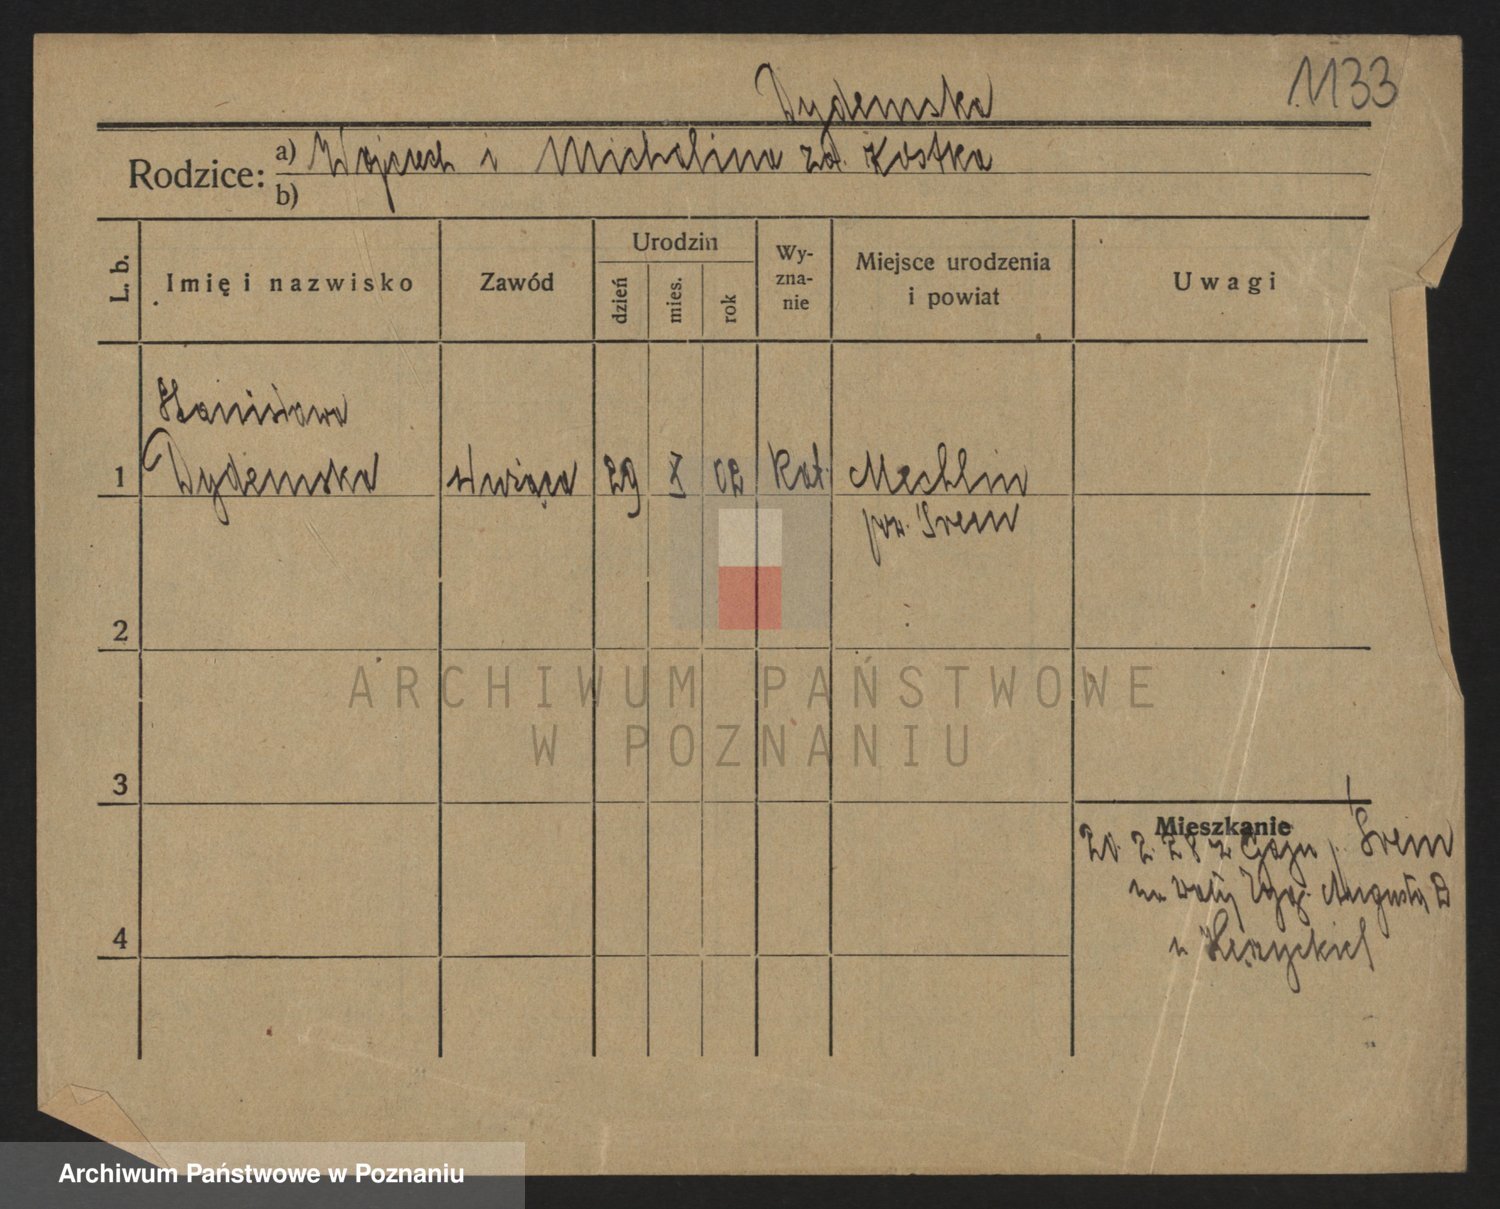 1133
Dydemska
Rodzice: a) Wojciech i Michalina zd. Kostka
b)
L. b.
Imię i nazwisko
Zawód
Urodzin
dzień
mies.
rok
Wy-
zna-
nie
Miejsce urodzenia
i powiat
Uwagi
Stanisława
1 Dydemska służąca 29 X 02 kat. Mechlin
pow. Śrem
2
ARCHIWUM PAŃSTWOWE
W POZNANIU
3
Mieszkanie
20. 2. 28 z Gaju p. Śrem
na Wały Zyg. Augusta 2
4
Archiwum Państwowe w Poznaniu